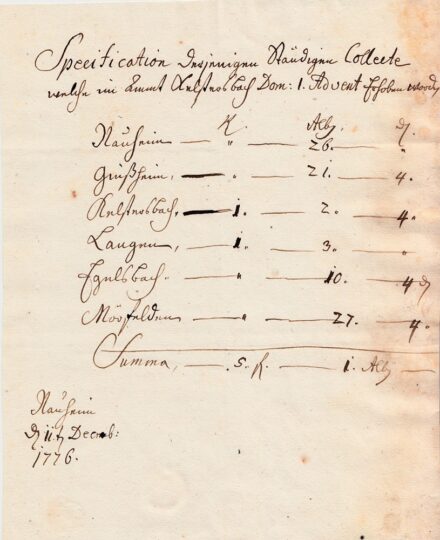 Specification desjenigen Ständigen Collecte
welche im Ammt Kelsterbach Dom: 1. Advent Erhoben worden
Alb.
Nauheim — " — 26. — "
Ginßheim, — " — 21. — 4.
Kelsterbach, — 1. — 2. — 4.
Langen, — 1. — 3. — "
Egelsbach. — " — 10. — 4 d
Mörfelden — " — 27. — 4.
Summa, — 5. f. — 1. Alb
Nauheim
d 11 t Decemb:
1776.